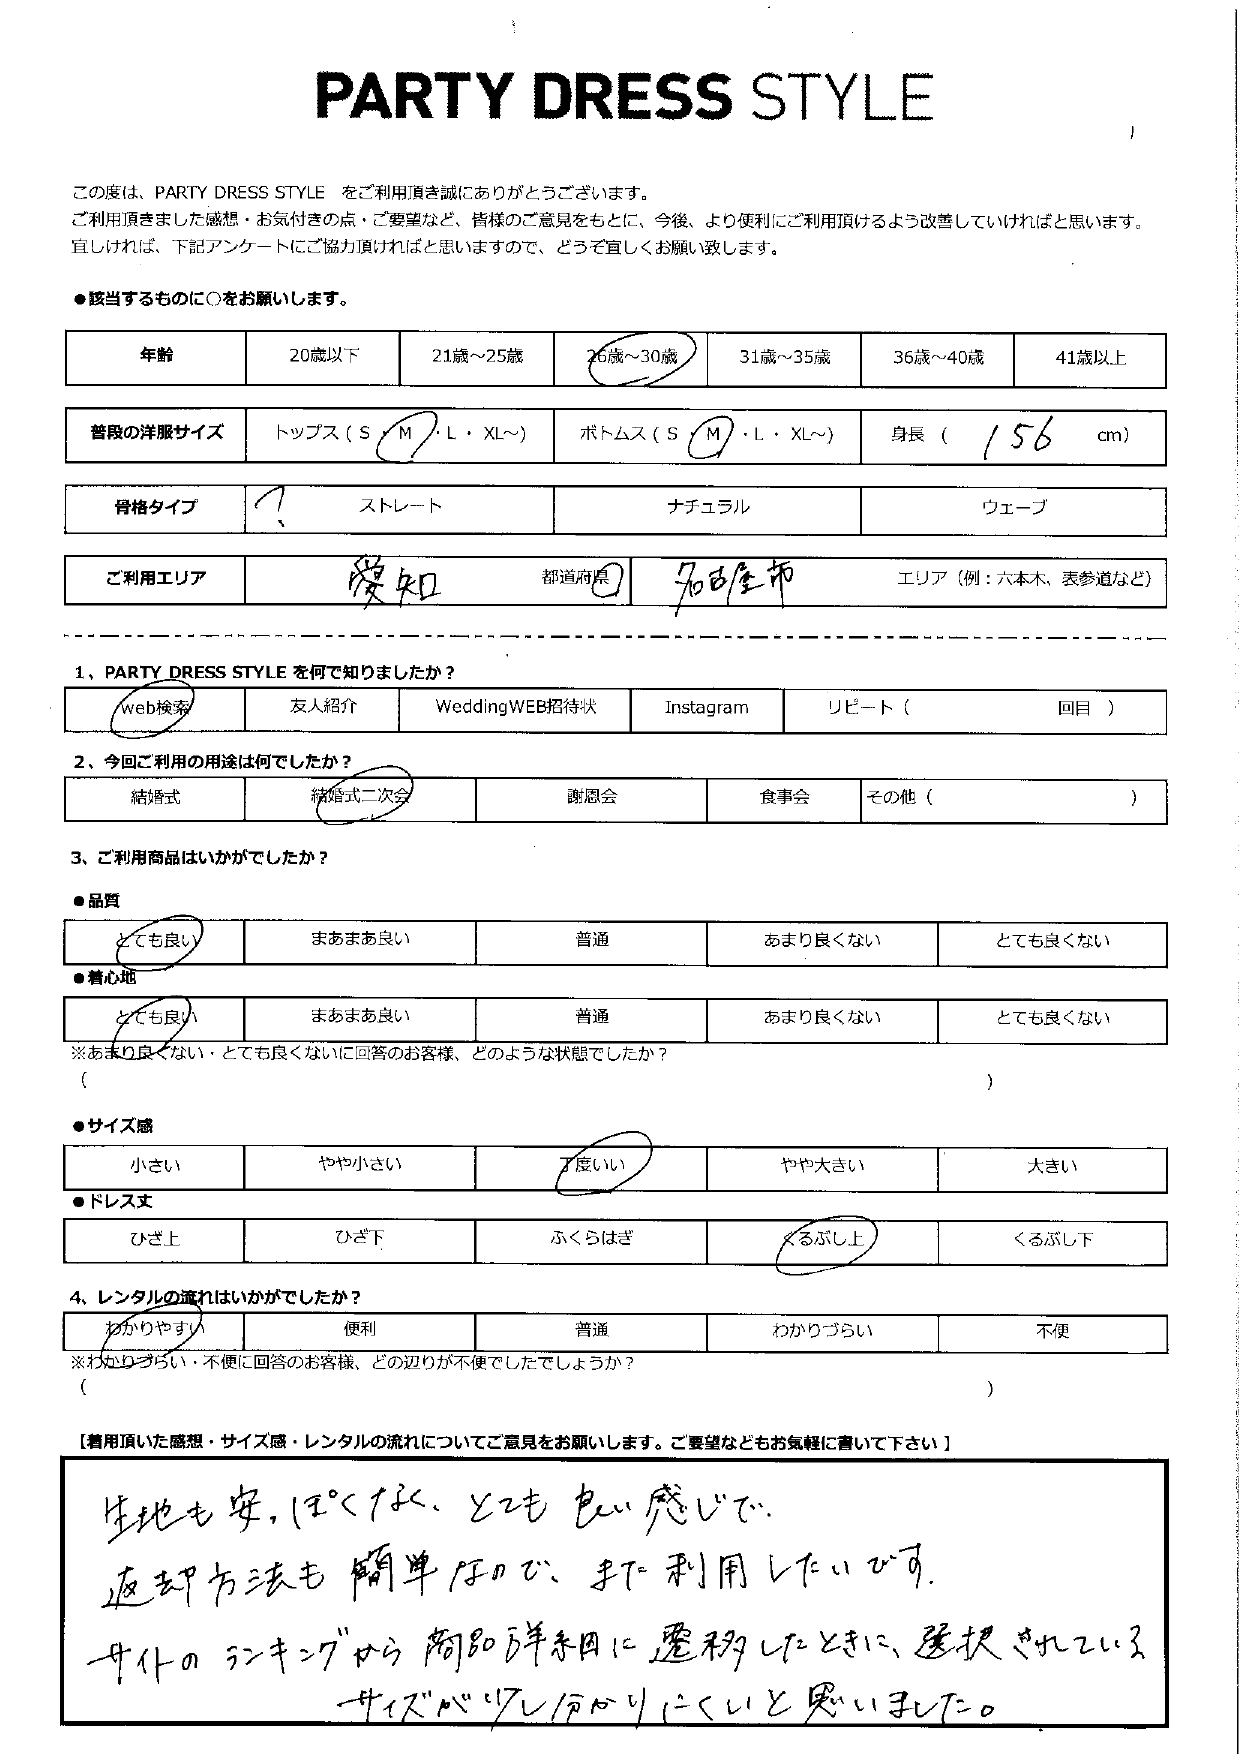 PARTY DRESS STYLE
この度は、PARTY DRESS STYLE をご利用頂き誠にありがとうございます。
ご利用頂きました感想・お気付きの点・ご要望など、皆様のご意見をもとに、今後、より便利にご利用頂けるよう改善していければと思います。
宜しければ、下記アンケートにご協力頂ければと思いますので、どうぞ宜しくお願い致します。
●該当するものに○をお願いします。
年齢 20歳以下 21歳～25歳 26歳～30歳 31歳～35歳 36歳～40歳 41歳以上
普段の洋服サイズ トップス ( S ・ M ・ L ・ XL～) ボトムス ( S ・ M ・ L ・ XL～) 身長 ( 156 cm)
骨格タイプ ? ストレート ナチュラル ウェーブ
ご利用エリア 愛知 都道府県 名古屋市 エリア（例：六本木、表参道など）
1、PARTY DRESS STYLE を何で知りましたか？
web検索 友人紹介 WeddingWEB招待状 Instagram リピート ( 回目 )
2、今回ご利用の用途は何でしたか？
結婚式 結婚式二次会 謝恩会 食事会 その他 ( )
3、ご利用商品はいかがでしたか？
●品質
とても良い まあまあ良い 普通 あまり良くない とても良くない
●着心地
とても良い まあまあ良い 普通 あまり良くない とても良くない
※あまり良くない・とても良くないに回答のお客様、どのような状態でしたか？
( )
●サイズ感
小さい やや小さい 丁度いい やや大きい 大きい
●ドレス丈
ひざ上 ひざ下 ふくらはぎ くるぶし上 くるぶし下
4、レンタルの流れはいかがでしたか？
わかりやすい 便利 普通 わかりづらい 不便
※わかりづらい・不便に回答のお客様、どの辺りが不便でしたでしょうか？
( )
【着用頂いた感想・サイズ感・レンタルの流れについてご意見をお願いします。ご要望などもお気軽に書いて下さい】
生地も安っぽくなく、とても良い感じで、
返却方法も簡単なので、また利用したいです。
サイトのランキングから商品詳細に遷移したときに、選択されている
サイズが少し分かりにくいと思いました。